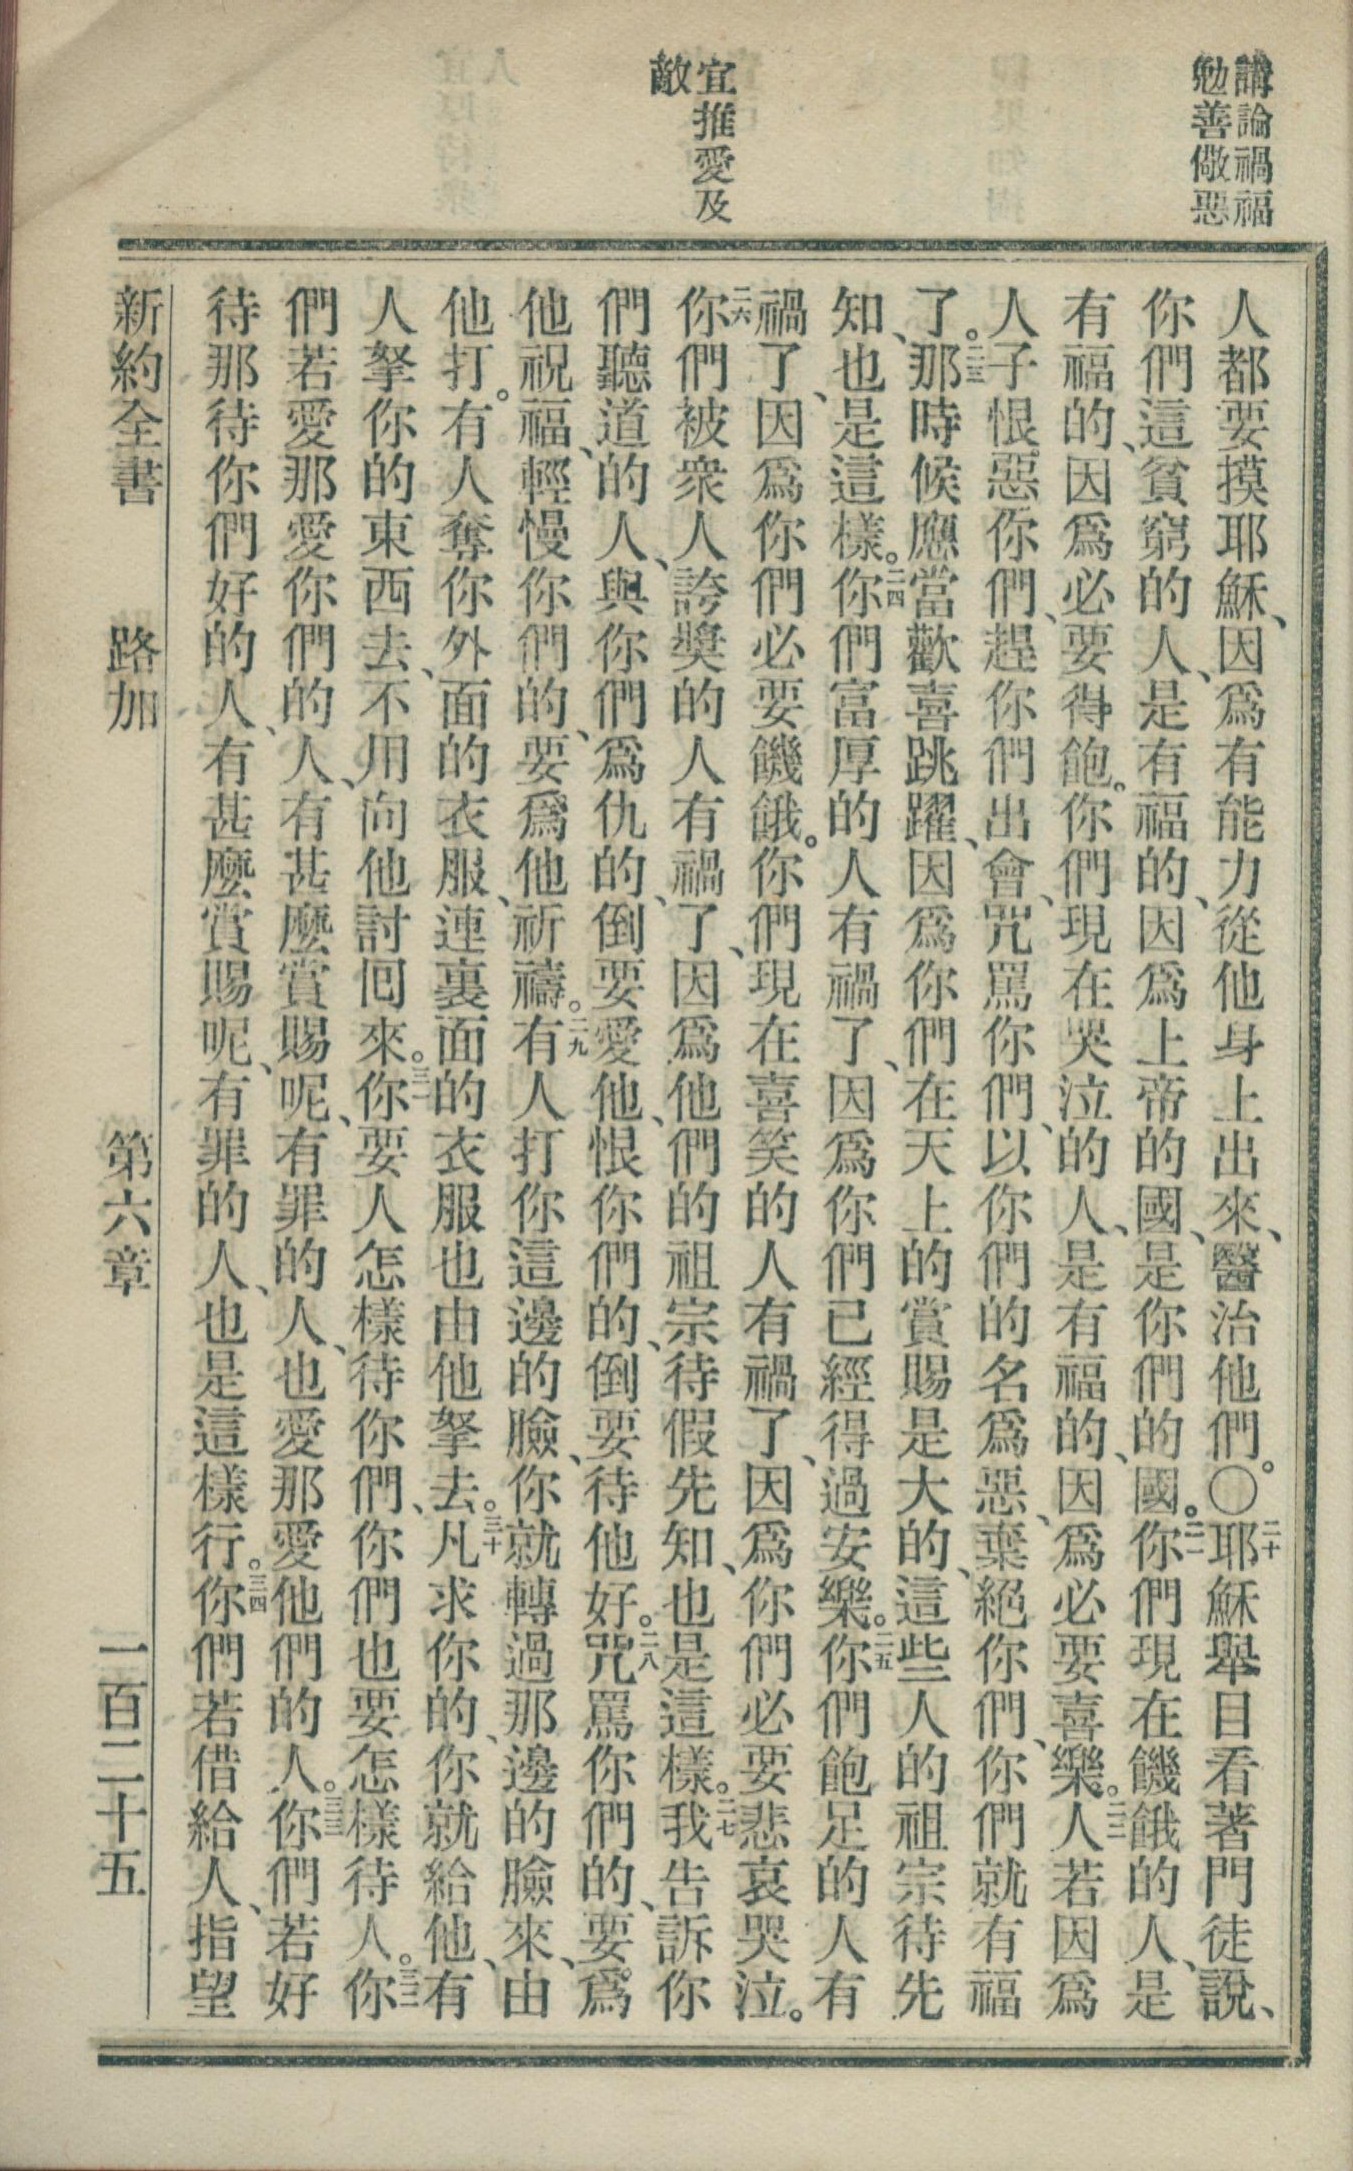 講論禍福
勉善儆惡
宜推愛及
敵
人都要摸耶穌、因爲有能力從他身上出來、醫治他們。〇二十耶穌舉目看著門徒說、
你們這貧窮的人、是有福的、因爲上帝的國、是你們的國。二一你們現在饑餓的人、是
有福的、因爲必要得飽。你們現在哭泣的人、是有福的、因爲必要喜樂。二二人若因爲
人子恨惡你們、趕你們出會、咒罵你們、以你們的名爲惡、棄絕你們、你們就有福
了。二三那時候應當歡喜跳躍、因爲你們在天上的賞賜是大的、這些人的祖宗待先
知、也是這樣。二四你們富厚的人有禍了、因爲你們已經得過安樂。二五你們飽足的人有
禍了、因爲你們必要饑餓。你們現在喜笑的人有禍了、因爲你們必要悲哀哭泣。
二六你們被衆人誇獎的人有禍了、因爲他們的祖宗待假先知、也是這樣。二七我告訴你
們聽道的人、與你們爲仇的、倒要愛他、恨你們的、倒要待他好。二八咒罵你們的、要爲
他祝福、輕慢你們的、要爲他祈禱。二九有人打你這邊的臉、你就轉過那邊的臉來、由
他打。有人奪你外面的衣服、連裏面的衣服也由他拏去。三十凡求你的、你就給他、有
人拏你的東西去、不用向他討囘來。三一你要人怎樣待你們、你們也要怎樣待人。三二你
們若愛那愛你們的人、有甚麼賞賜呢、有罪的人、也愛那愛他們的人。三三你們若好
待那待你們好的人、有甚麼賞賜呢、有罪的人、也是這樣行。三四你們若借給人、指望
新約全書 路加 第六章 一百二十五